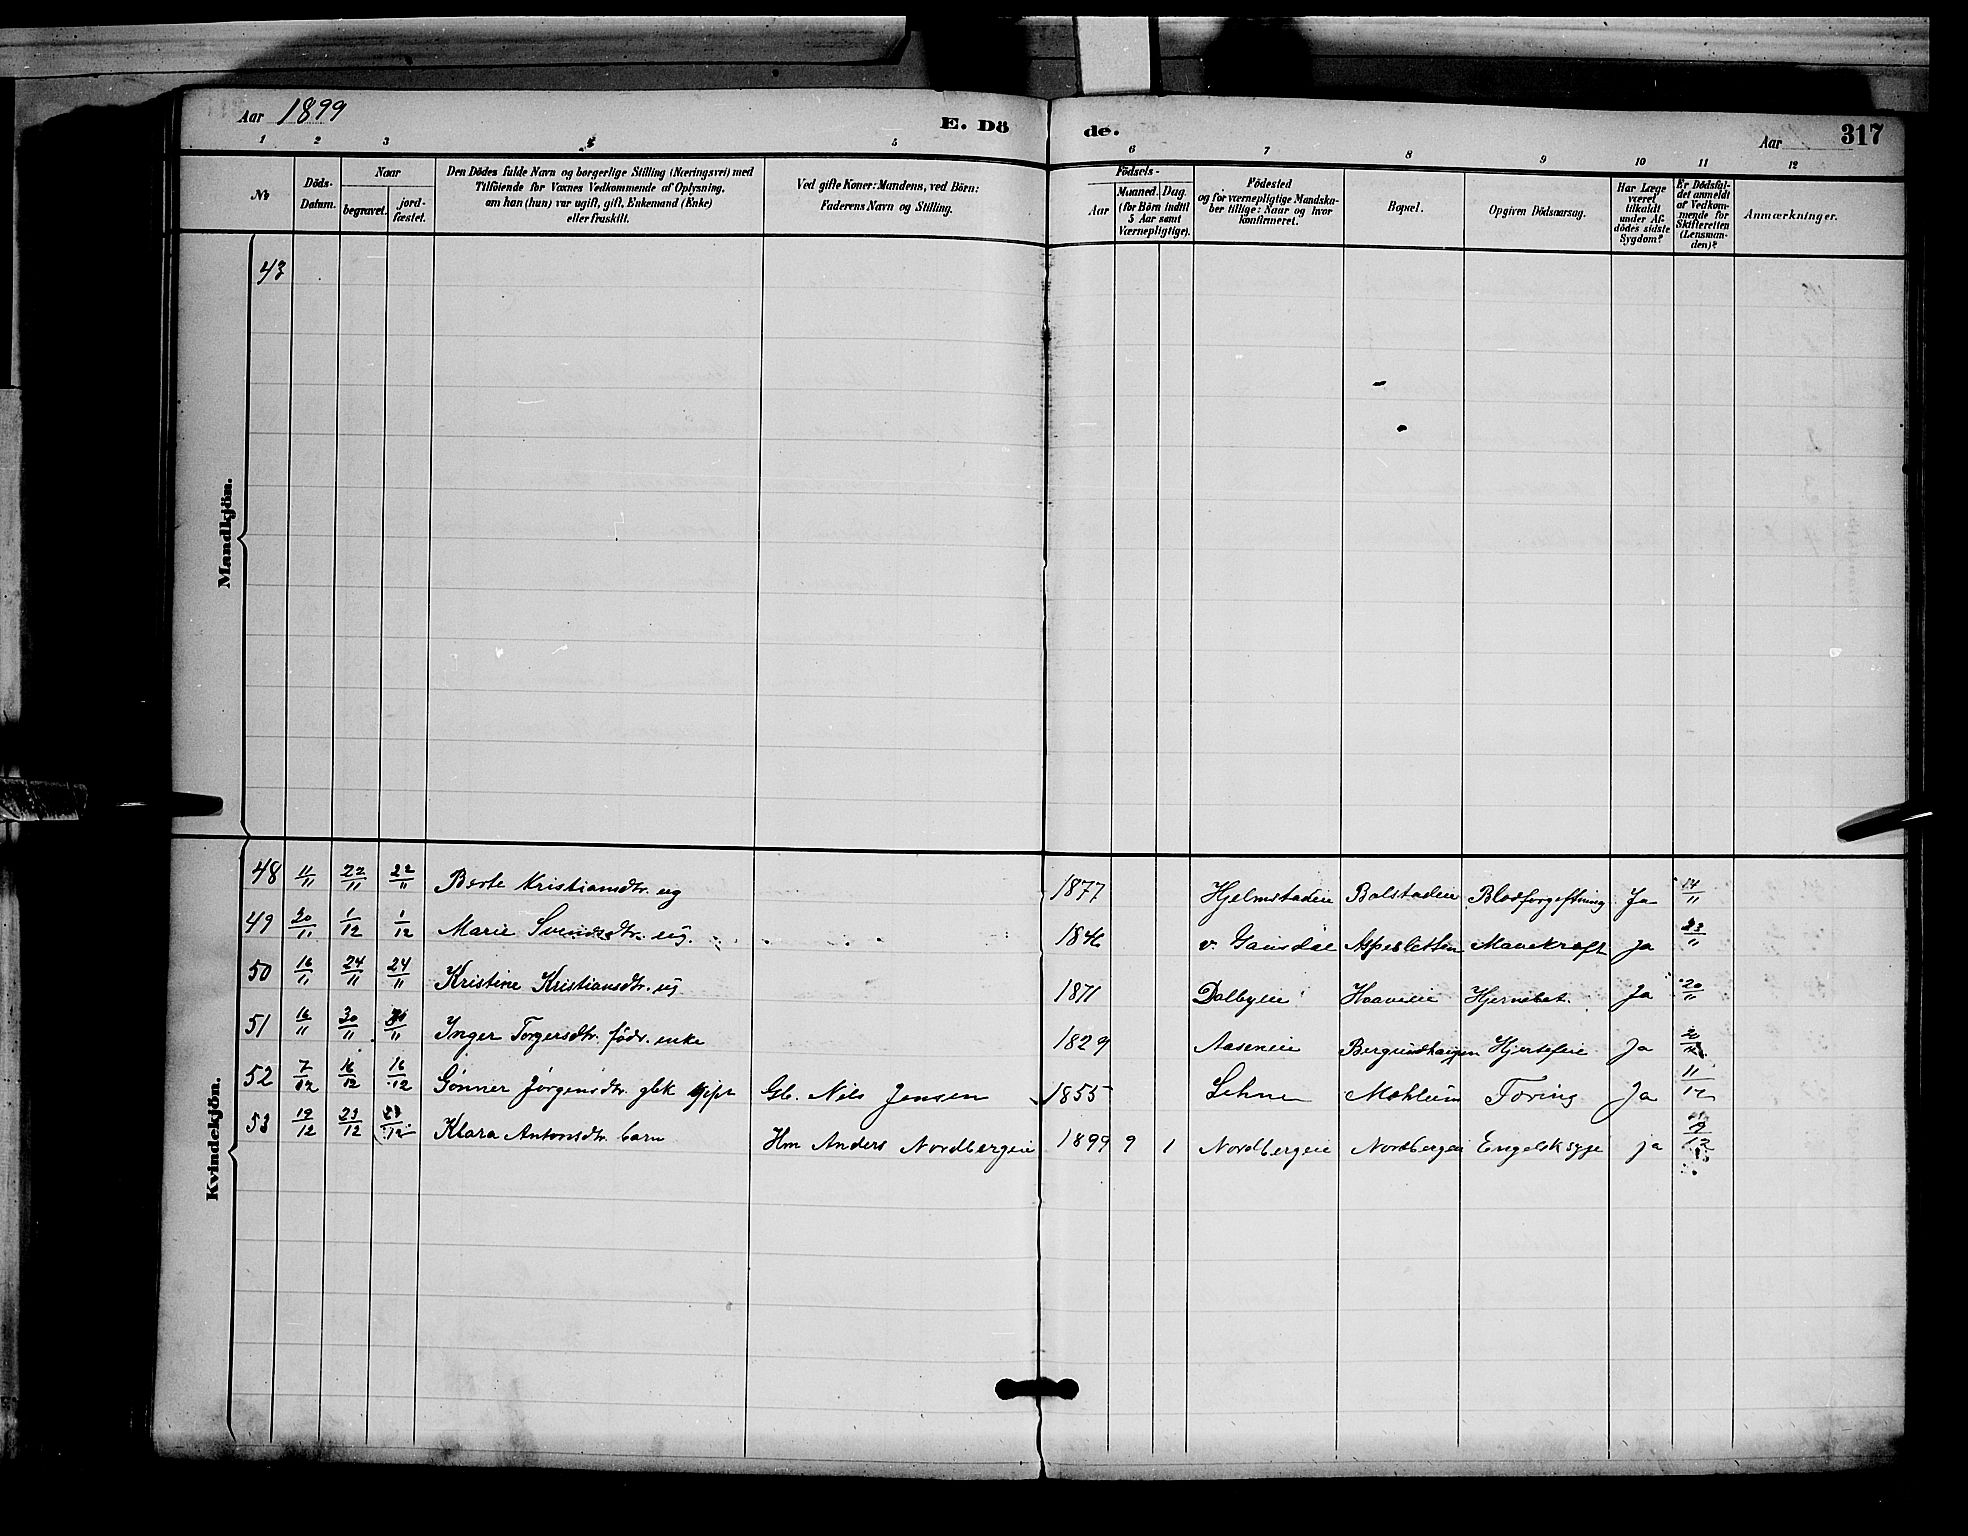 Aar 1899
E. Dö
de.
Aar
317
1 2 3 4 5 6 7 8 9 10 11 12
No
Döds-
Datum.
Naar
begravet.
jord-
fæstet.
Den Dödes fulde Navn og borgerlige Stilling (Næringsvei) med
Tilföiende for Voxnes Vedkommende af Oplysning,
om han (hun) var ugift, gift, Enkemand (Enke)
eller fraskilt.
Ved gifte Koner: Mandens, ved Börn:
Faderens Navn og Stilling.
Födsels-
Aar
Maaned. Dag.
(for Börn indtil
5 Aar samt
Værnepligtige).
Födested
og for værnepligtige Mandska-
ber tillige: Naar og hvor
konfirmeret.
Bopæl.
Opgiven Dödsaarsag.
Har Læge
været
tilkaldt
under Af-
dödes sidste
Sygdom?
Er Dödsfal-
det anmeldt
af Vedkom-
mende for
Skifteretten
(Lensman-
den)?
Anmærkninger.
Mandkjön.
43
Kvindekjön.
48 11/11 22/11 22/11 Berte Kristiansdtr. ug 1877 Hjelmstadeie Bolstadeie Blodforgiftning Ja 14/11
49 20/11 1/12 1/12 Marie Svendsdtr. ug. 1846 v. Gausdal Aspesletten Mavekræft Ja 23/11
50 16/11 24/11 24/11 Kristine Kristiansdtr. ug 1871 Dalbyeie Haaveeie Hjernebet. Ja 20/11
51 16/11 30/11 30/11 Inger Torgersdtr. födr. enke 1829 Aaseneie Bergundhaugen Hjertefeil Ja
52 7/12 16/12 16/12 Gønner Jörgensdtr. gbk gift Gb. Nils Jensen 1855 Lehne Mæhlum Tæring Ja 11/12
53 19/12 23/12 23/12 Klara Antonsdtr. barn Hm Anders Nordbergeie 1899 9 1 Nordbergeie Nordbergeie Engelsk syge ja